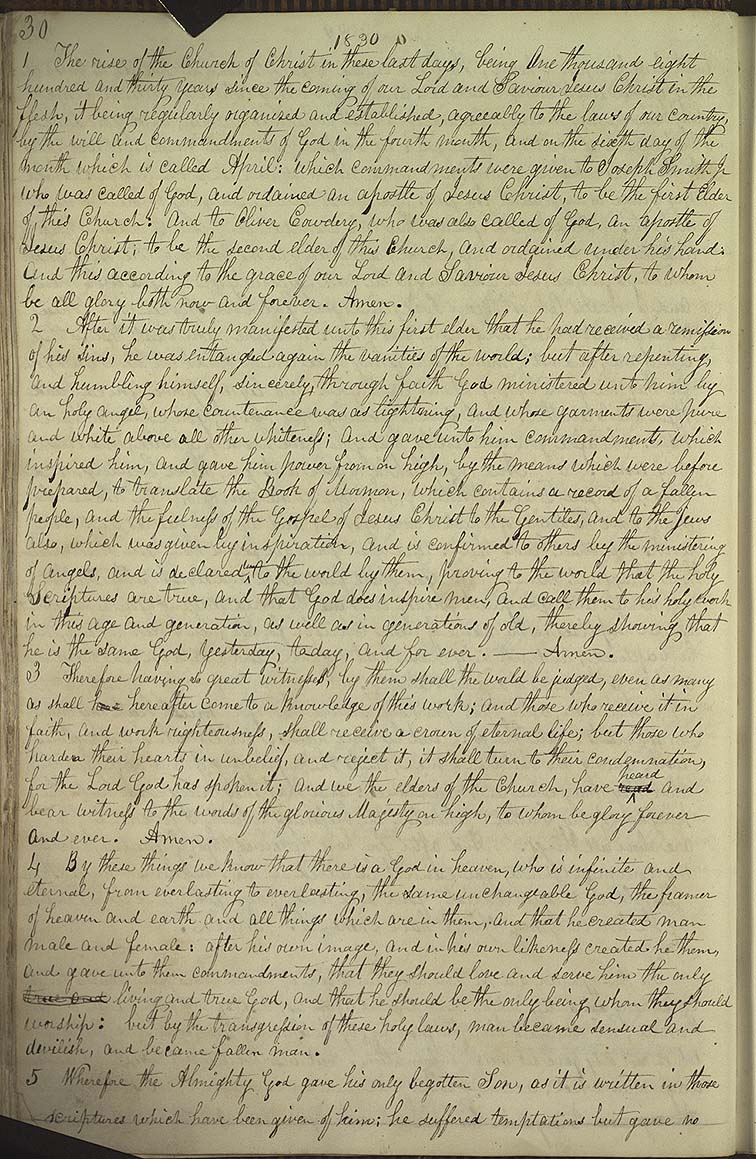 30
1830
1 The rise of the Church of Christ in these last days, being One thousand eight
hundred and thirty years since the coming of our Lord and Saviour Jesus Christ in the
flesh, it being regularly organised and established, agreeably to the laws of our country,
by the will and commandments of God in the fourth month, and on the sixth day of the
month which is called April: which commandments were given to Joseph Smith Jr
who was called of God, and ordained an apostle of Jesus Christ, to be the first Elder
of this Church: And to Oliver Cowdery, who was also called of God, an apostle of
Jesus Christ; to be the second elder of this Church, and ordained under his hand:
And this according to the grace of our Lord and Saviour Jesus Christ, to whom
be all glory both now and forever. Amen.
2 After it was truly manifested unto this first elder that he had received a remission
of his sins, he was entangled again the vanities of the world; but after repenting,
and humbling himself, sincerely, through faith God ministered unto him by
an holy angel, whose countenance was as lightning, and whose garments were pure
and white above all other whiteness; and gave unto him commandments, which
inspired him, and gave him power from on high, by the means which were before
prepared, to translate the Book of Mormon, which contains a record of a fallen
people, and the fulness of the Gospel of Jesus Christ to the Gentiles, and to the Jews
also, which was given by inspiration, and is confirmed to others by the ministering
of angels, and is declared to the world by them, proving to the world that the holy
Scriptures are true, and that God does inspire men, and call them to his holy work
in this age and generation, as well as in generations of old, thereby showing that
he is the same God, yesterday, today, and for ever. — Amen.
3 Therefore having so great witnesses, by them shall the world be judged, even as many
as shall hereafter come to a knowledge of this work; and those who receive it in
faith, and work righteousness, shall receive a crown of eternal life; but those who
harden their hearts in unbelief, and reject it, it shall turn to their condemnation,
for the Lord God has spoken it; and we the elders of the Church, have heard and
bear witness to the words of the glorious Majesty on high, to whom be glory forever
and ever. Amen.
4 By these things we know that there is a God in heaven, who is infinite and
eternal, from everlasting to everlasting, the same unchangeable God, the framer
of heaven and earth and all things which are in them, and that he created man
male and female: after his own image, and in his own likeness created he them,
and gave unto them commandments, that they should love and serve him the only
true and living and true God, and that he should be the only being whom they should
worship: but by the transgression of these holy laws, man became sensual and
devilish, and became fallen man.
5 Wherefore the Almighty God gave his only begotten Son, as it is written in those
scriptures which have been given of him; he suffered temptations but gave no